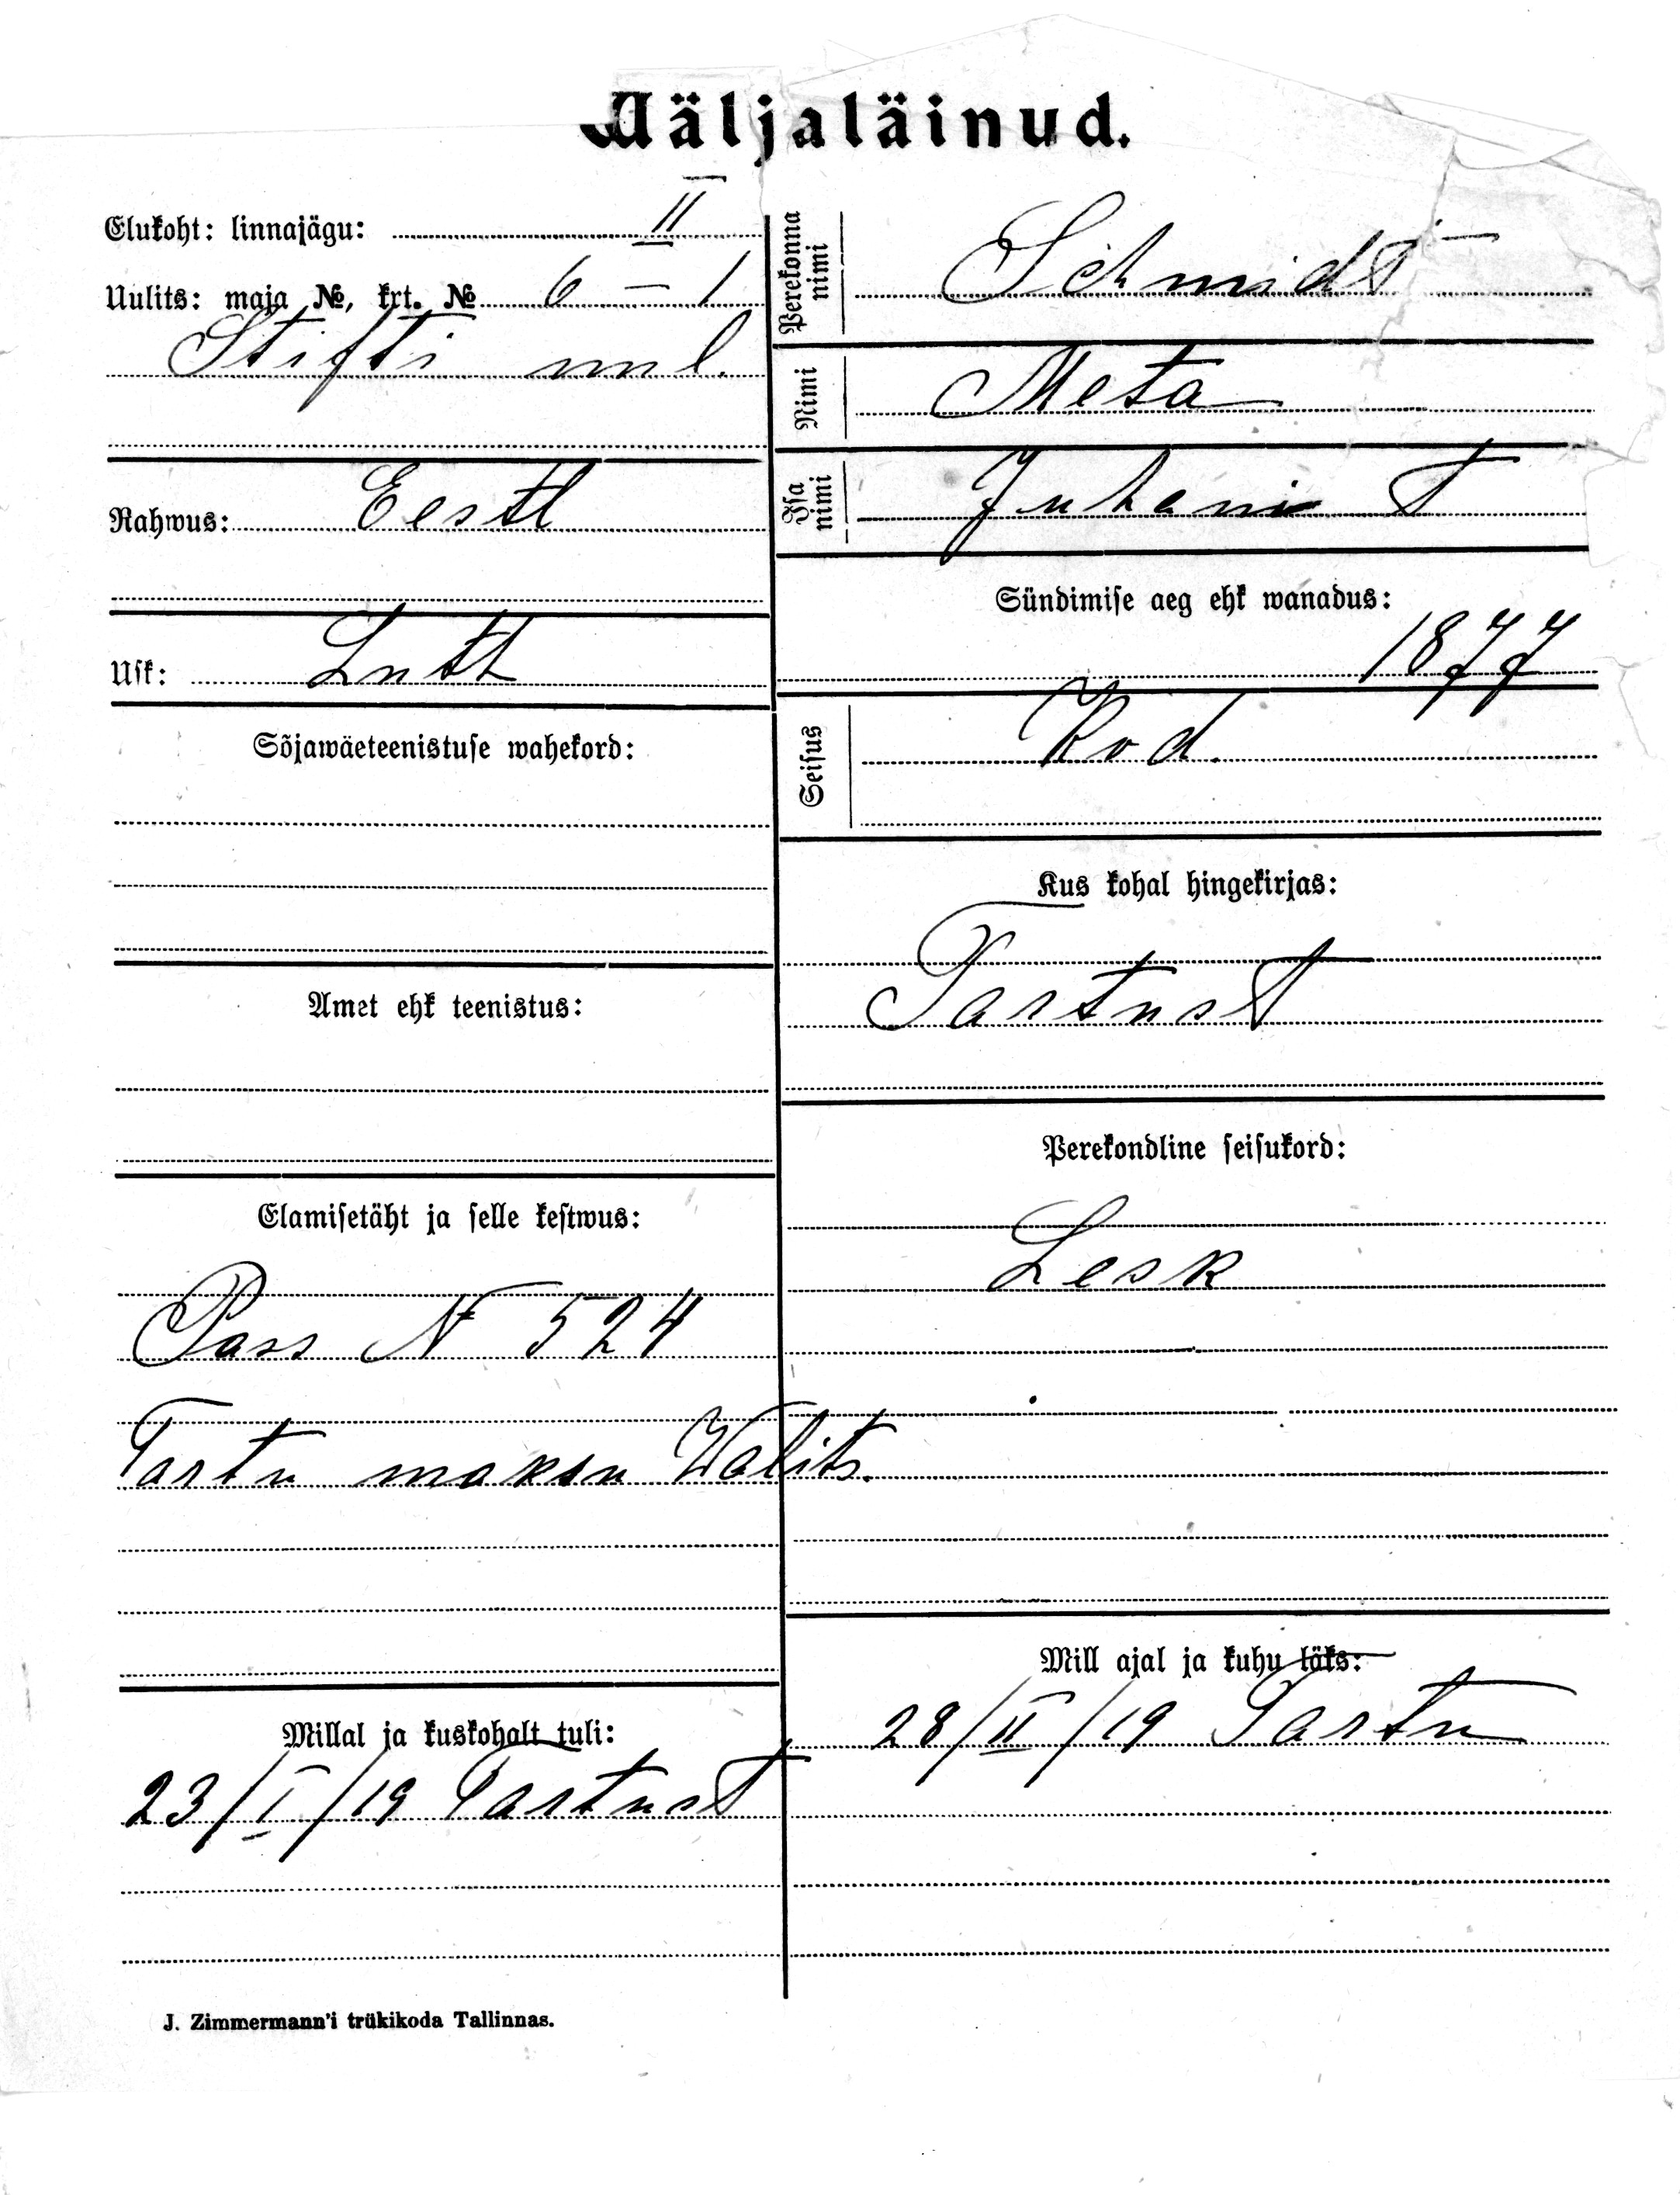 Wäljaläinud.
Elukoht: linnajägu: II
Uulits: maja №, krt. № 6 – 1
Stifti uul.
Rahwus: Eestl
Usk: Luth
Sõjawäeteenistuse wahekord:
Amet ehk teenistus:
Elamisetäht ja selle kestwus:
Pass N 524
Tartu maksu Walits.
Millal ja kuskohalt tuli:
23/I/19 Tartust
Perekonna nimi Schmidt
Nimi Meta
Isa nimi Juhani t
Sündimise aeg ehk wanadus:
1877
Seisus Kod.
Kus kohal hingekirjas:
Tartust
Perekondline seisukord:
Lesk
Mill ajal ja kuhu läks:
28/II/19 Tartu
J. Zimmermann'i trükikoda Tallinnas.